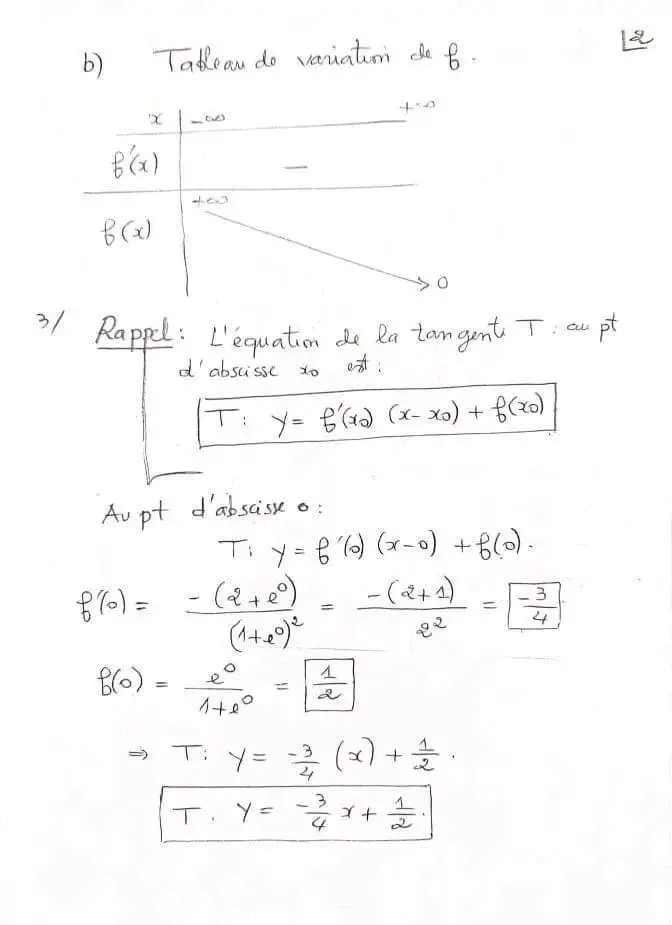 2
b) Tableau de variation de f.
x | -∞ +∞
f'(x) —
f(x) +∞ 0
3/ Rappel : L'équation de la tangente T : au pt
d'abscisse x₀ est :
T : y = f'(x₀) (x - x₀) + f(x₀)
Au pt d'abscisse 0 :
T : y = f'(0) (x-0) + f(0).
f'(0) = -(2+e⁰)/(1+e⁰)² = -(2+1)/2² = -3/4
f(0) = e⁰/1+e⁰ = 1/2
⇒ T : y = -3/4 (x) + 1/2 .
T . y = -3/4 x + 1/2 .